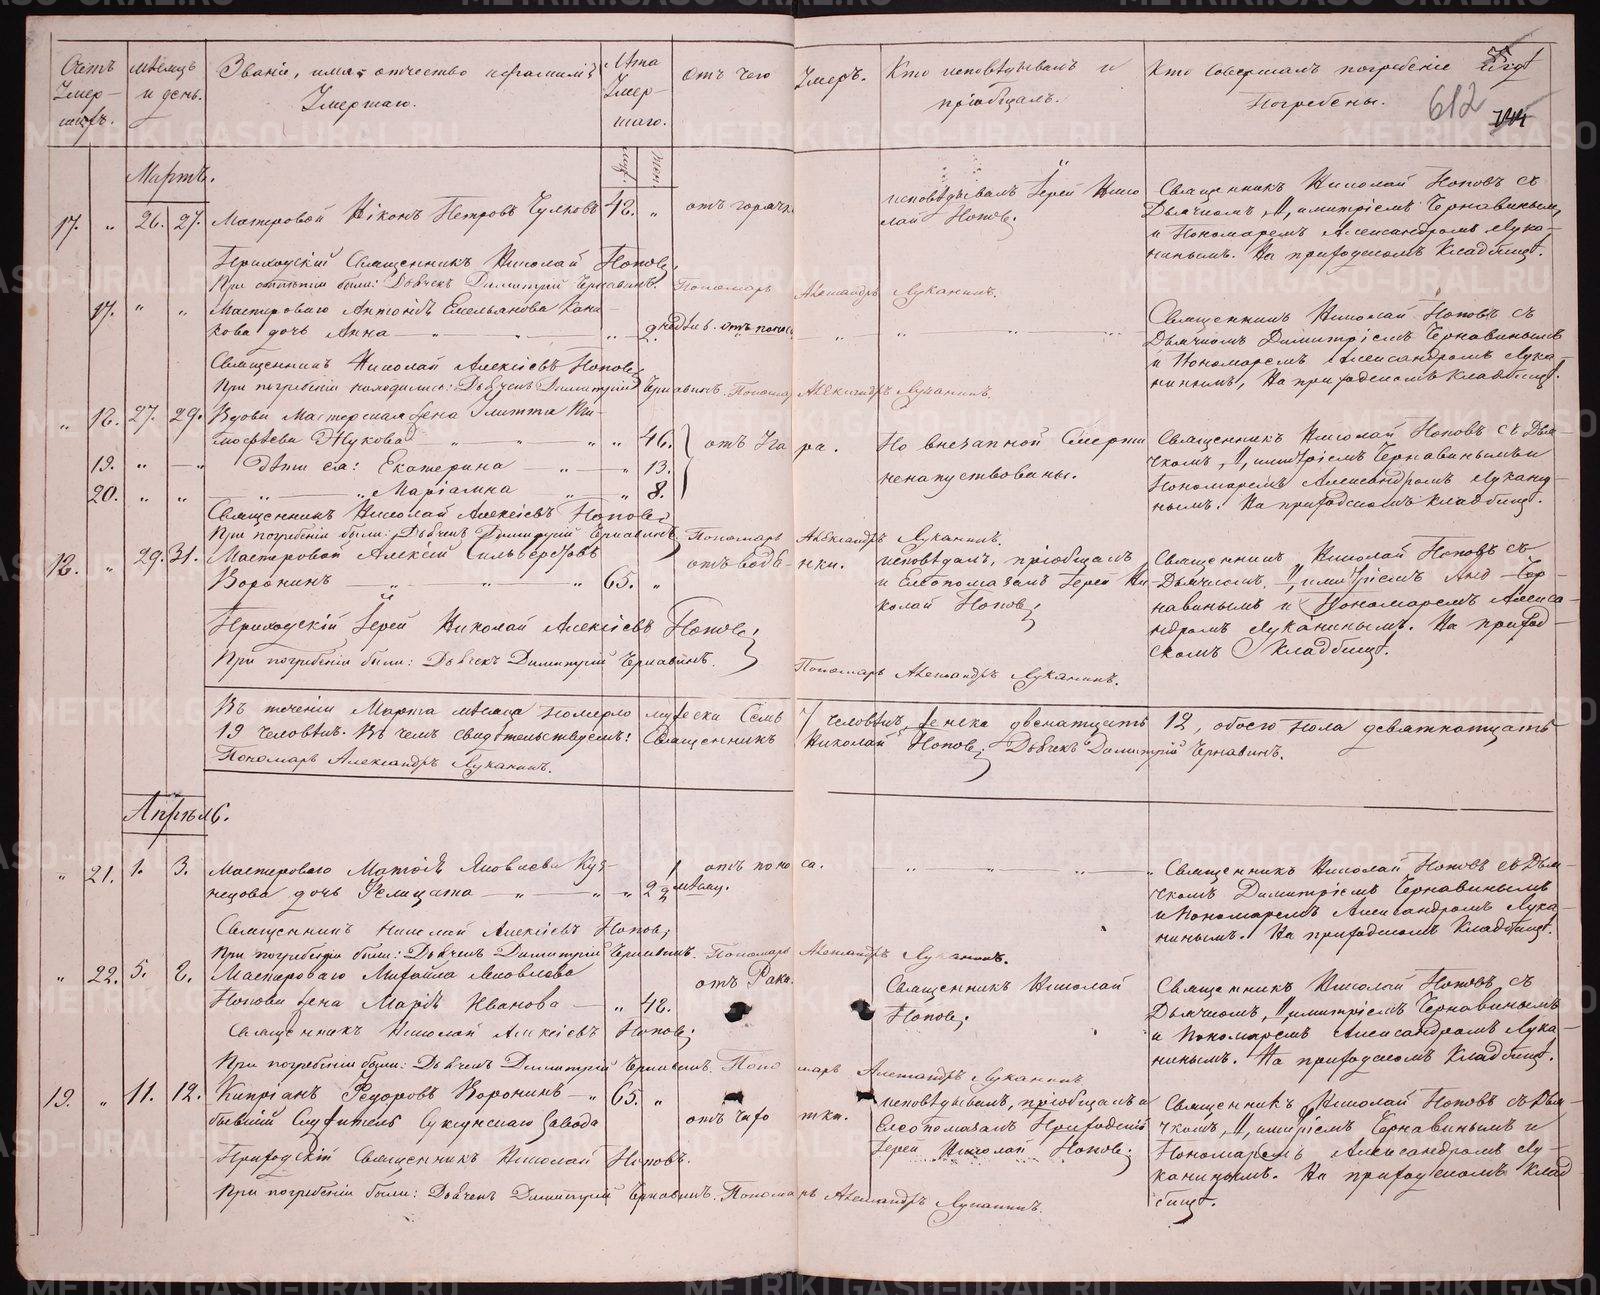 Счетъ Умер-шихъ.
Мѣсяцъ и день.
Званіе, имя, отчество и фамилія Умершаго.
Лѣта Умер-шаго.
Отъ чего Умеръ.
Кто исповѣдывалъ и пріобщалъ.
Кто совершалъ погребеніе и гдѣ Погребены.
612
муж. жен.
Мартъ.
17. „ 26. 27. Мастеровой Никонъ Петровъ Чулковъ 42. „ отъ горячк
исповѣдывалъ Іерей Нико
лай Поповъ;
Священникъ Николай Поповъ съ
Дьячкомъ Димитріемъ Чернавинымъ,
и Пономаремъ Александромъ Лука-
нинымъ. На приходскомъ Кладбищѣ.
Приходскій Священникъ Николай Поповъ;
При отпѣтіи были: Дьячекъ Димитрій Чернавинъ. Пономарь Александръ Луканинъ.
17. „ „ Мастероваго Антона Емельянова
кова дочь Анна — „ — „ — „ 2 недѣль. отъ поноса — „ — „ — „
Священникъ Николай Поповъ съ
Дьячкомъ Димитріемъ Чернавинымъ
и Пономаремъ Александромъ Лука-
нинымъ, На приходскомъ Кладбищѣ.
Священникъ Николай Алексіевъ Поповъ;
При погребеніи находились: Дьячекъ Димитрій Чернавинъ. Пономарь Александръ Луканинъ.
„ 18. 27. 29. Вдова Мастерская жена Улитта
Жукова — „ — „ — „ 46. отъ Угара. По внезапной Смерти
19. „ — „ Дѣти ея: Екатерина — „ — 13. ненапутствованы.
20. „ „ — „ — „ Маріамна „ „ 8.
Священникъ Николай Поповъ съ Дья-
чкомъ, Димитріемъ Чернавинымъ и
Пономаремъ Александромъ Лукани-
нымъ. На приходскомъ кладбищѣ.
Священникъ Николай Алексіевъ Поповъ;
При погребеніи были: Дьячекъ Димитрій Чернавинъ Пономарь Александръ Луканинъ.
18. „ 29. 31. Мастеровой Алексій Сильверстовъ отъ водянки.
Воронинъ „ — „ — „ 65. „
исповѣдалъ, пріобщалъ
и Елеопомазалъ Іерей Ни-
колай Поповъ;
Священникъ Николай Поповъ съ
Дьячкомъ, Димитріемъ Анд — Чер-
навинымъ и Пономаремъ Алекса-
ндромъ Луканинымъ. На приход-
скомъ Кладбищѣ.
Приходскій Іерей Николай Алексіевъ Поповъ;
При погребеніи были: Дьячекъ Димитрій Чернавинъ. Пономарь Александръ Луканинъ.
Въ теченіи Марта мѣсяца померло мужеска Семь 7 человѣкъ, женска двенатцать 12, обоего пола девятнатцать
19 человѣкъ. Въ чемъ свидетельствуемъ: Священникъ Николай Поповъ; Дьячекъ Димитрій Чернавинъ.
Пономарь Александръ Луканинъ.
Апрѣль.
„ 21. 1. 3. Мастероваго Матвія Яковлева Куз-
нецова дочь Фелицата — „ — „ — „ 2 1/2 мѣсяц. отъ поноса. „ — „ — „ — „
Священникъ Николай Поповъ съ Дья-
чкомъ Димитріемъ Чернавинымъ
и Пономаремъ Александромъ Лука-
нинымъ. На приходскомъ Кладбищѣ.
Священникъ Николай Алексіевъ Поповъ;
При погребеніи были: Дьячекъ Димитрій Чернавинъ. Пономарь Александръ Луканинъ.
„ 22. 5. Мастероваго Михайла Яковлева отъ Рака.
Попова жена Марія Иванова — „ 48.
Священникъ Николай
Поповъ;
Священникъ Николай Поповъ съ
Дьячкомъ, Димитріемъ Чернавинымъ
и Пономаремъ Александромъ Лука-
нинымъ. На приходскомъ Кладбищѣ.
Священникъ Николай Алексіевъ Поповъ;
При погребеніи были: Дьячекъ Димитрій Чернавинъ. Пономарь Александръ Луканинъ
19. „ 11. 12. Кипріанъ Федоровъ Воронинъ — „ 65. „
бывшій Служитель Суксунскаго Завода отъ Чахотки.
исповѣдывалъ, пріобщалъ и
Елеопомазалъ Приходскій
Іерей Николай Поповъ;
Священникъ Николай Поповъ съ Дья-
чкомъ, Димитріемъ Чернавинымъ и
Пономаремъ Александромъ Лу-
канинымъ. На приходскомъ Клад-
бищѣ.
Приходскій Священникъ Николай Поповъ.
При погребеніи были: Дьячекъ Димитрій Чернавинъ. Пономарь Александръ Луканинъ.
METRIKI.GASO-URAL.RU